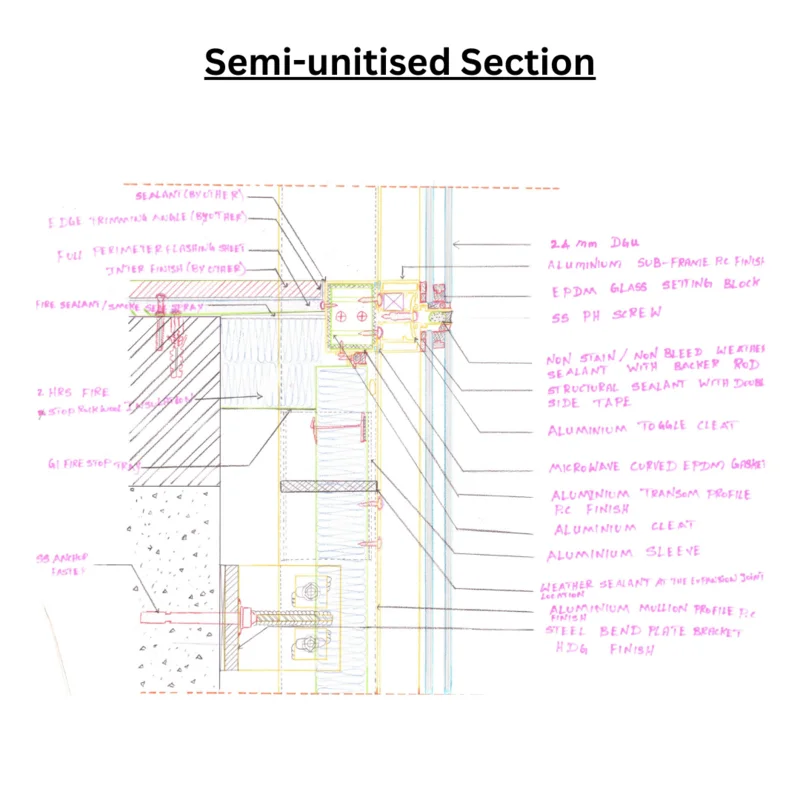 Semi-unitised Section
SEALANT (BY OTHER)
EDGE TRIMMING ANGLE (BY OTHER)
FULL PERIMETER FLASHING SHEET
INTER FINISH (BY OTHER)
FIRE SEALANT / SMOKE SEAL SPRAY
2 HRS FIRE
STOP ROCKWOOL INSULATION
GI FIRE STOP TRAY
SS ANCHOR
FASTE
24 mm DGU
ALUMINIUM SUB-FRAME P.C FINISH
EPDM GLASS SETTING BLOCK
SS PH SCREW
NON STAIN / NON BLEED WEATHER
SEALANT WITH BACKER ROD
STRUCTURAL SEALANT WITH DOUB
SIDE TAPE
ALUMINIUM TOGGLE CLEAT
MICROWAVE CURVED EPDM GASKET
ALUMINIUM TRANSOM PROFILE
P.C FINISH
ALUMINIUM CLEAT
ALUMINIUM SLEEVE
WEATHER SEALANT AT THE EXPANSION JOINT
LOCATION
ALUMINIUM MULLION PROFILE P.C
FINISH
STEEL BEND PLATE BRACKET
HDG FINISH